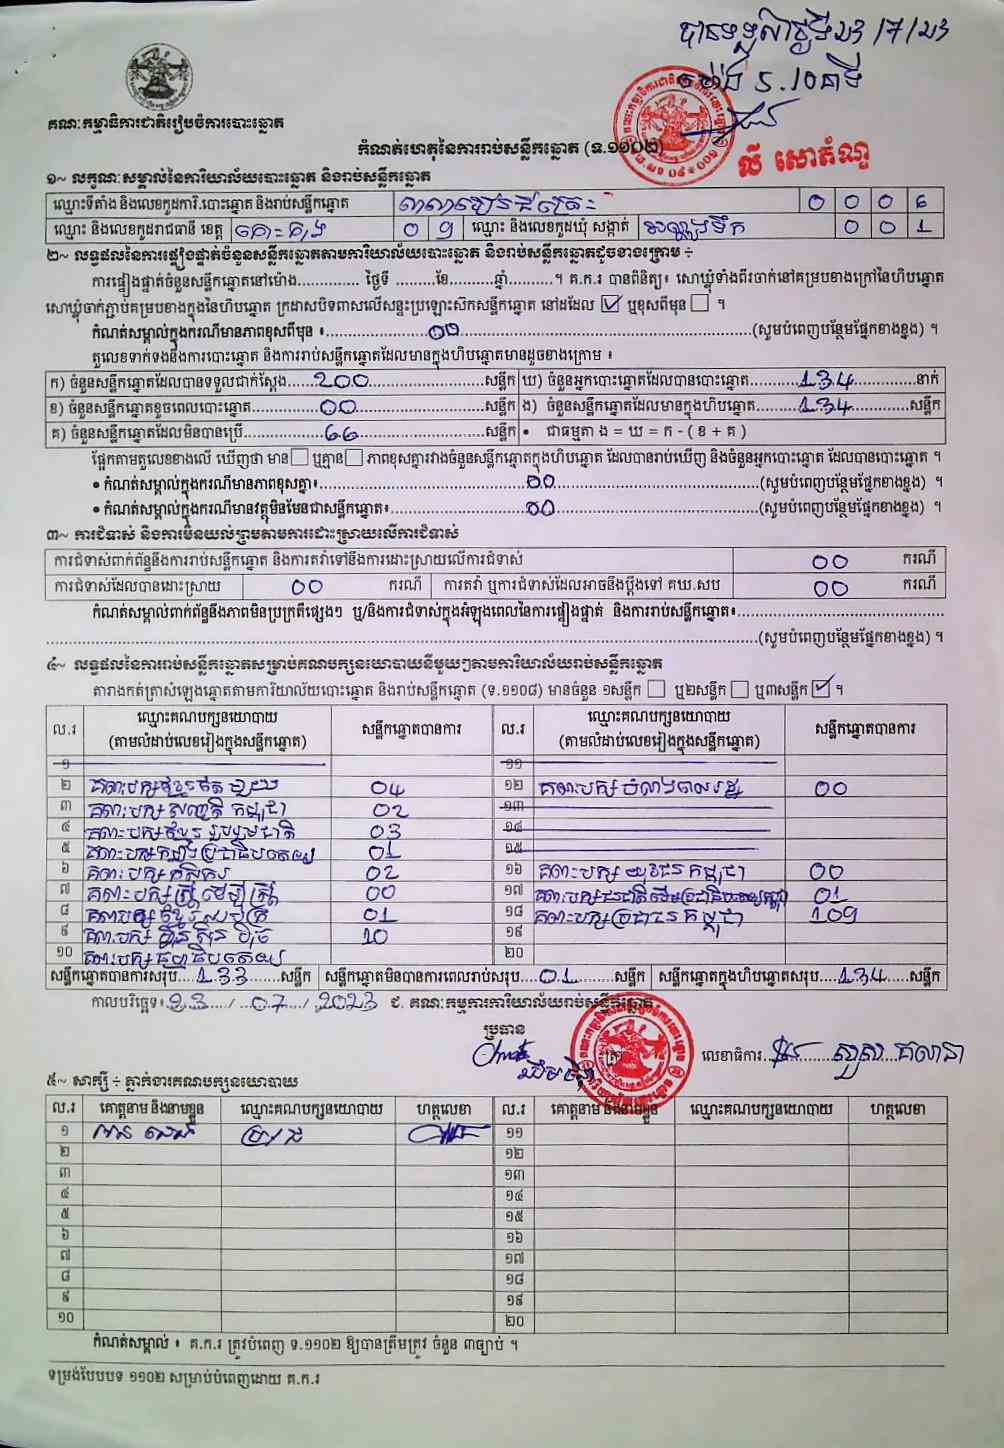 បានទទួលថ្ងៃទី ២៣ /7/ ២៣
ម៉ោង 5.10 នាទី
លី សោភ័ណ្ឌ
គណៈកម្មាធិការជាតិរៀបចំការបោះឆ្នោត
កំណត់ហេតុនៃការរាប់សន្លឹកឆ្នោត (ទ.១១០២)
១~ លក្ខណៈសម្គាល់នៃការិយាល័យបោះឆ្នោត និងរាប់សន្លឹកឆ្នោត
ឈ្មោះទីតាំង និងលេខកូដការិ.បោះឆ្នោត និងរាប់សន្លឹកឆ្នោត 0 0 0 6
ឈ្មោះ និងលេខកូដរាជធានី ខេត្ត កោះកុង 0 9 ឈ្មោះ និងលេខកូដឃុំ សង្កាត់ អណ្តូងទឹក 0 0 1
២~ លទ្ធផលនៃការផ្ទៀងផ្ទាត់ចំនួនសន្លឹកឆ្នោតតាមការិយាល័យបោះឆ្នោត និងរាប់សន្លឹកឆ្នោតដូចខាងក្រោម ÷
ការផ្ទៀងផ្ទាត់ចំនួនសន្លឹកឆ្នោតនៅម៉ោង.............. ថ្ងៃទី .........ខែ..........ឆ្នាំ.......... ។ គ.ក.រ បានពិនិត្យ៖ សោឃ្លុំទាំងពីរចាក់នៅគម្របខាងក្រៅនៃហិបឆ្នោត
សោឃ្លុំចាក់ភ្ជាប់គម្របខាងក្នុងនៃហិបឆ្នោត ក្រដាសបិទពាសលើសន្ទះប្រឡោះស៊កសន្លឹកឆ្នោត នៅដដែល ☑ ឬខុសពីមុន ☐ ។
កំណត់សម្គាល់ក្នុងករណីមានភាពខុសពីមុន ៖ 00 (សូមបំពេញបន្ថែមផ្នែកខាងខ្នង) ។
តួលេខទាក់ទងនឹងការបោះឆ្នោត និងការរាប់សន្លឹកឆ្នោតដែលមានក្នុងហិបឆ្នោតមានដូចខាងក្រោម ៖
ក) ចំនួនសន្លឹកឆ្នោតដែលបានទទួលជាក់ស្តែង 200 សន្លឹក ឃ) ចំនួនអ្នកបោះឆ្នោតដែលបានបោះឆ្នោត 134 នាក់
ខ) ចំនួនសន្លឹកឆ្នោតខូចពេលបោះឆ្នោត 00 សន្លឹក ង) ចំនួនសន្លឹកឆ្នោតដែលមានក្នុងហិបឆ្នោត 134 សន្លឹក
គ) ចំនួនសន្លឹកឆ្នោតដែលមិនបានប្រើ 66 សន្លឹក • ជាធម្មតា ង = ឃ = ក - ( ខ + គ )
ផ្អែកតាមតួលេខខាងលើ ឃើញថា មាន ☐ ឬគ្មាន ☐ ភាពខុសគ្នារវាងចំនួនសន្លឹកឆ្នោតក្នុងហិបឆ្នោត ដែលបានរាប់ឃើញ និងចំនួនអ្នកបោះឆ្នោត ដែលបានបោះឆ្នោត ។
• កំណត់សម្គាល់ក្នុងករណីមានភាពខុសគ្នា៖ 00 (សូមបំពេញបន្ថែមផ្នែកខាងខ្នង) ។
• កំណត់សម្គាល់ក្នុងករណីមានវត្ថុមិនមែនជាសន្លឹកឆ្នោត៖ 00 (សូមបំពេញបន្ថែមផ្នែកខាងខ្នង) ។
៣~ ការជំទាស់ និងការមិនយល់ព្រមតាមការដោះស្រាយលើការជំទាស់
ការជំទាស់ពាក់ព័ន្ធនឹងការរាប់សន្លឹកឆ្នោត និងការតវ៉ាទៅនឹងការដោះស្រាយលើការជំទាស់ 00 ករណី
ការជំទាស់ដែលបានដោះស្រាយ 00 ករណី ការតវ៉ា ឬការជំទាស់ដែលអាចនឹងប្តឹងទៅ គឃ.សប 00 ករណី
កំណត់សម្គាល់ពាក់ព័ន្ធនឹងភាពមិនប្រក្រតីផ្សេងៗ ឬ/និងការជំទាស់ក្នុងអំឡុងពេលនៃការផ្ទៀងផ្ទាត់ និងការរាប់សន្លឹកឆ្នោត៖
(សូមបំពេញបន្ថែមផ្នែកខាងខ្នង) ។
៤~ លទ្ធផលនៃការរាប់សន្លឹកឆ្នោតសម្រាប់គណបក្សនយោបាយនីមួយៗតាមការិយាល័យរាប់សន្លឹកឆ្នោត
តារាងកត់ត្រាសំឡេងឆ្នោតតាមការិយាល័យបោះឆ្នោត និងរាប់សន្លឹកឆ្នោត (ទ.១១០៨) មានចំនួន ១សន្លឹក ☐ ឬ២សន្លឹក ☐ ឬ៣សន្លឹក ☑ ។
ល.រ ឈ្មោះគណបក្សនយោបាយ សន្លឹកឆ្នោតបានការ ល.រ ឈ្មោះគណបក្សនយោបាយ សន្លឹកឆ្នោតបានការ
(តាមលំដាប់លេខរៀងក្នុងសន្លឹកឆ្នោត) (តាមលំដាប់លេខរៀងក្នុងសន្លឹកឆ្នោត)
១ ១១
២ គណបក្សខ្មែរតែមួយ 04 ១២ គណបក្សបំរើរាស្ត្រ 00
៣ គណបក្ស សញ្ជាតិ កម្ពុជា 02 ១៣
៤ គណបក្សខ្មែរ រួបរួមជាតិ 03 ១៤
៥ គណបក្សប្រជាធិបតេយ្យ 01 ១៥
៦ គណបក្សកសិករ 02 ១៦ គណបក្ស យុវជន កម្ពុជា 00
៧ គណបក្សស្ត្រី ដើម្បី ស្ត្រី 00 ១៧ 01
៨ គណបក្ស ខ្មែរ 01 ១៨ គណបក្សប្រជាជនកម្ពុជា 109
៩ គណបក្ស ហ៊្វុនស៊ិនប៉ិច 10 ១៩
១០ គណបក្សធម្មាធិបតេយ្យ ២០
សន្លឹកឆ្នោតបានការសរុប 133 សន្លឹក សន្លឹកឆ្នោតមិនបានការពេលរាប់សរុប 01 សន្លឹក សន្លឹកឆ្នោតក្នុងហិបឆ្នោតសរុប 134 សន្លឹក
កាលបរិច្ឆេទ៖ 23 / 07 / 2023 ជ. គណៈកម្មការការិយាល័យរាប់សន្លឹកឆ្នោត
ប្រធាន
លេខាធិការ
៥~ សាក្សី ÷ ភ្នាក់ងារគណបក្សនយោបាយ
ល.រ គោត្តនាម និងនាមខ្លួន ឈ្មោះគណបក្សនយោបាយ ហត្ថលេខា ល.រ គោត្តនាម និងនាមខ្លួន ឈ្មោះគណបក្សនយោបាយ ហត្ថលេខា
១ ១១
២ ១២
៣ ១៣
៤ ១៤
៥ ១៥
៦ ១៦
៧ ១៧
៨ ១៨
៩ ១៩
១០ ២០
កំណត់សម្គាល់ ៖ គ.ក.រ ត្រូវបំពេញ ទ.១១០២ ឱ្យបានត្រឹមត្រូវ ចំនួន ៣ច្បាប់ ។
ទម្រង់បែបបទ ១១០២ សម្រាប់បំពេញដោយ គ.ក.រ